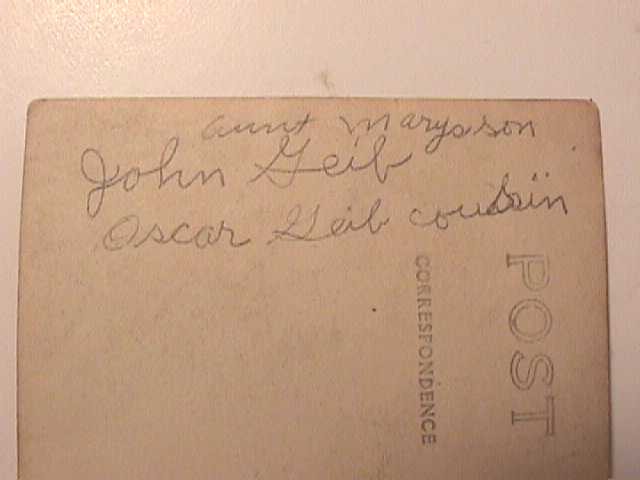 aunt Marys son
John Geib
Oscar Geib cousin
CORRESPONDENCE
POST